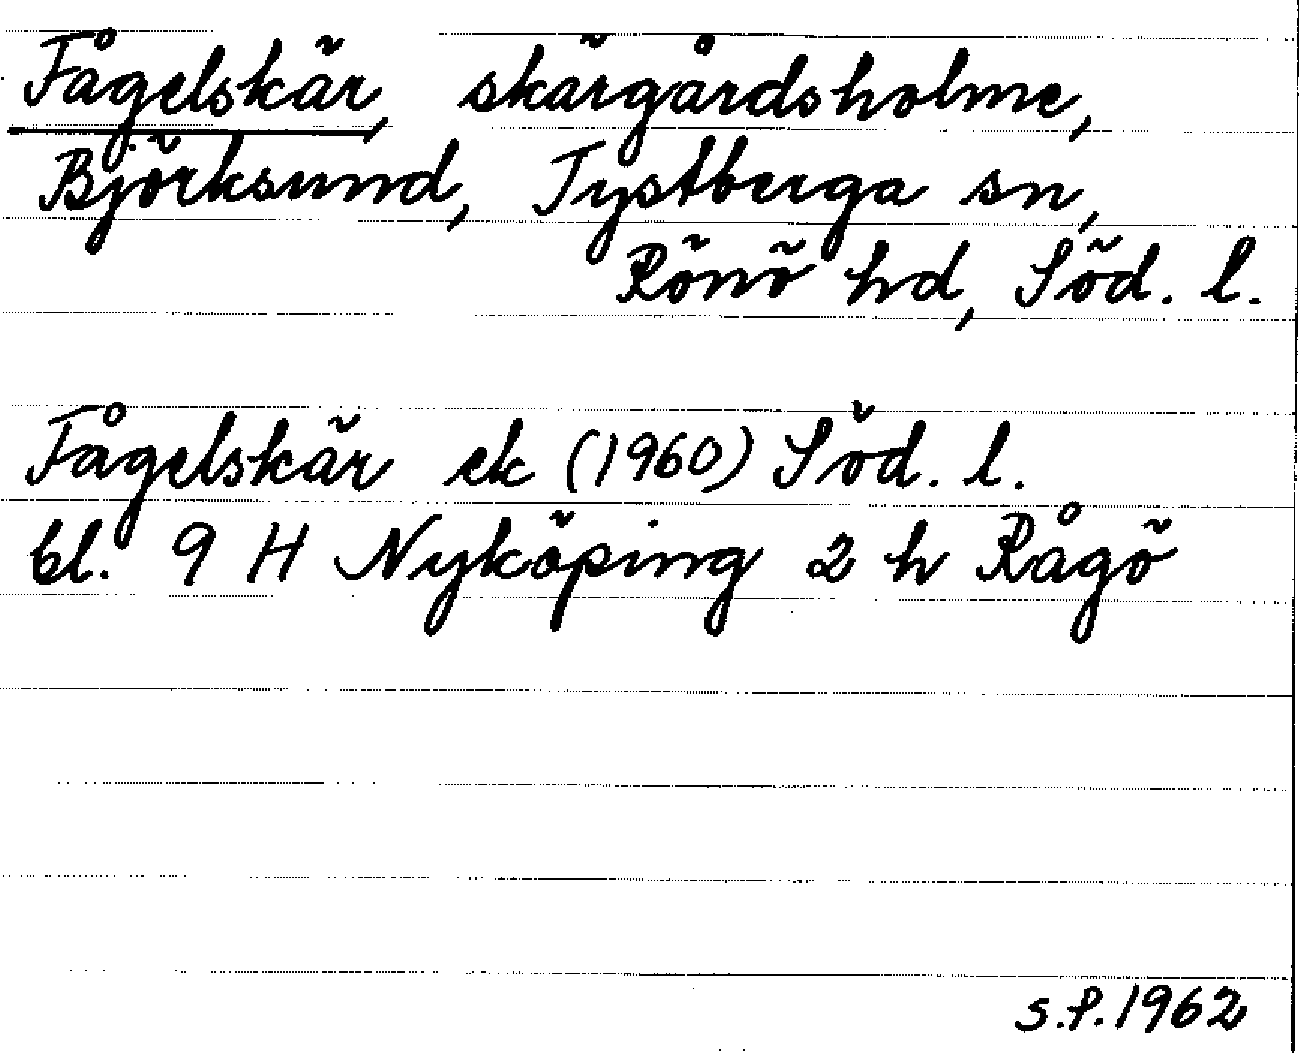 Fågelskär, skärgårdsholme,
Björksund, Tystberga sn,
Rönö hd, Söd. l.
Fågelskär ek (1960) Söd. l.
bl. 9 H Nyköping 2 h Rågö
S.P. 1962